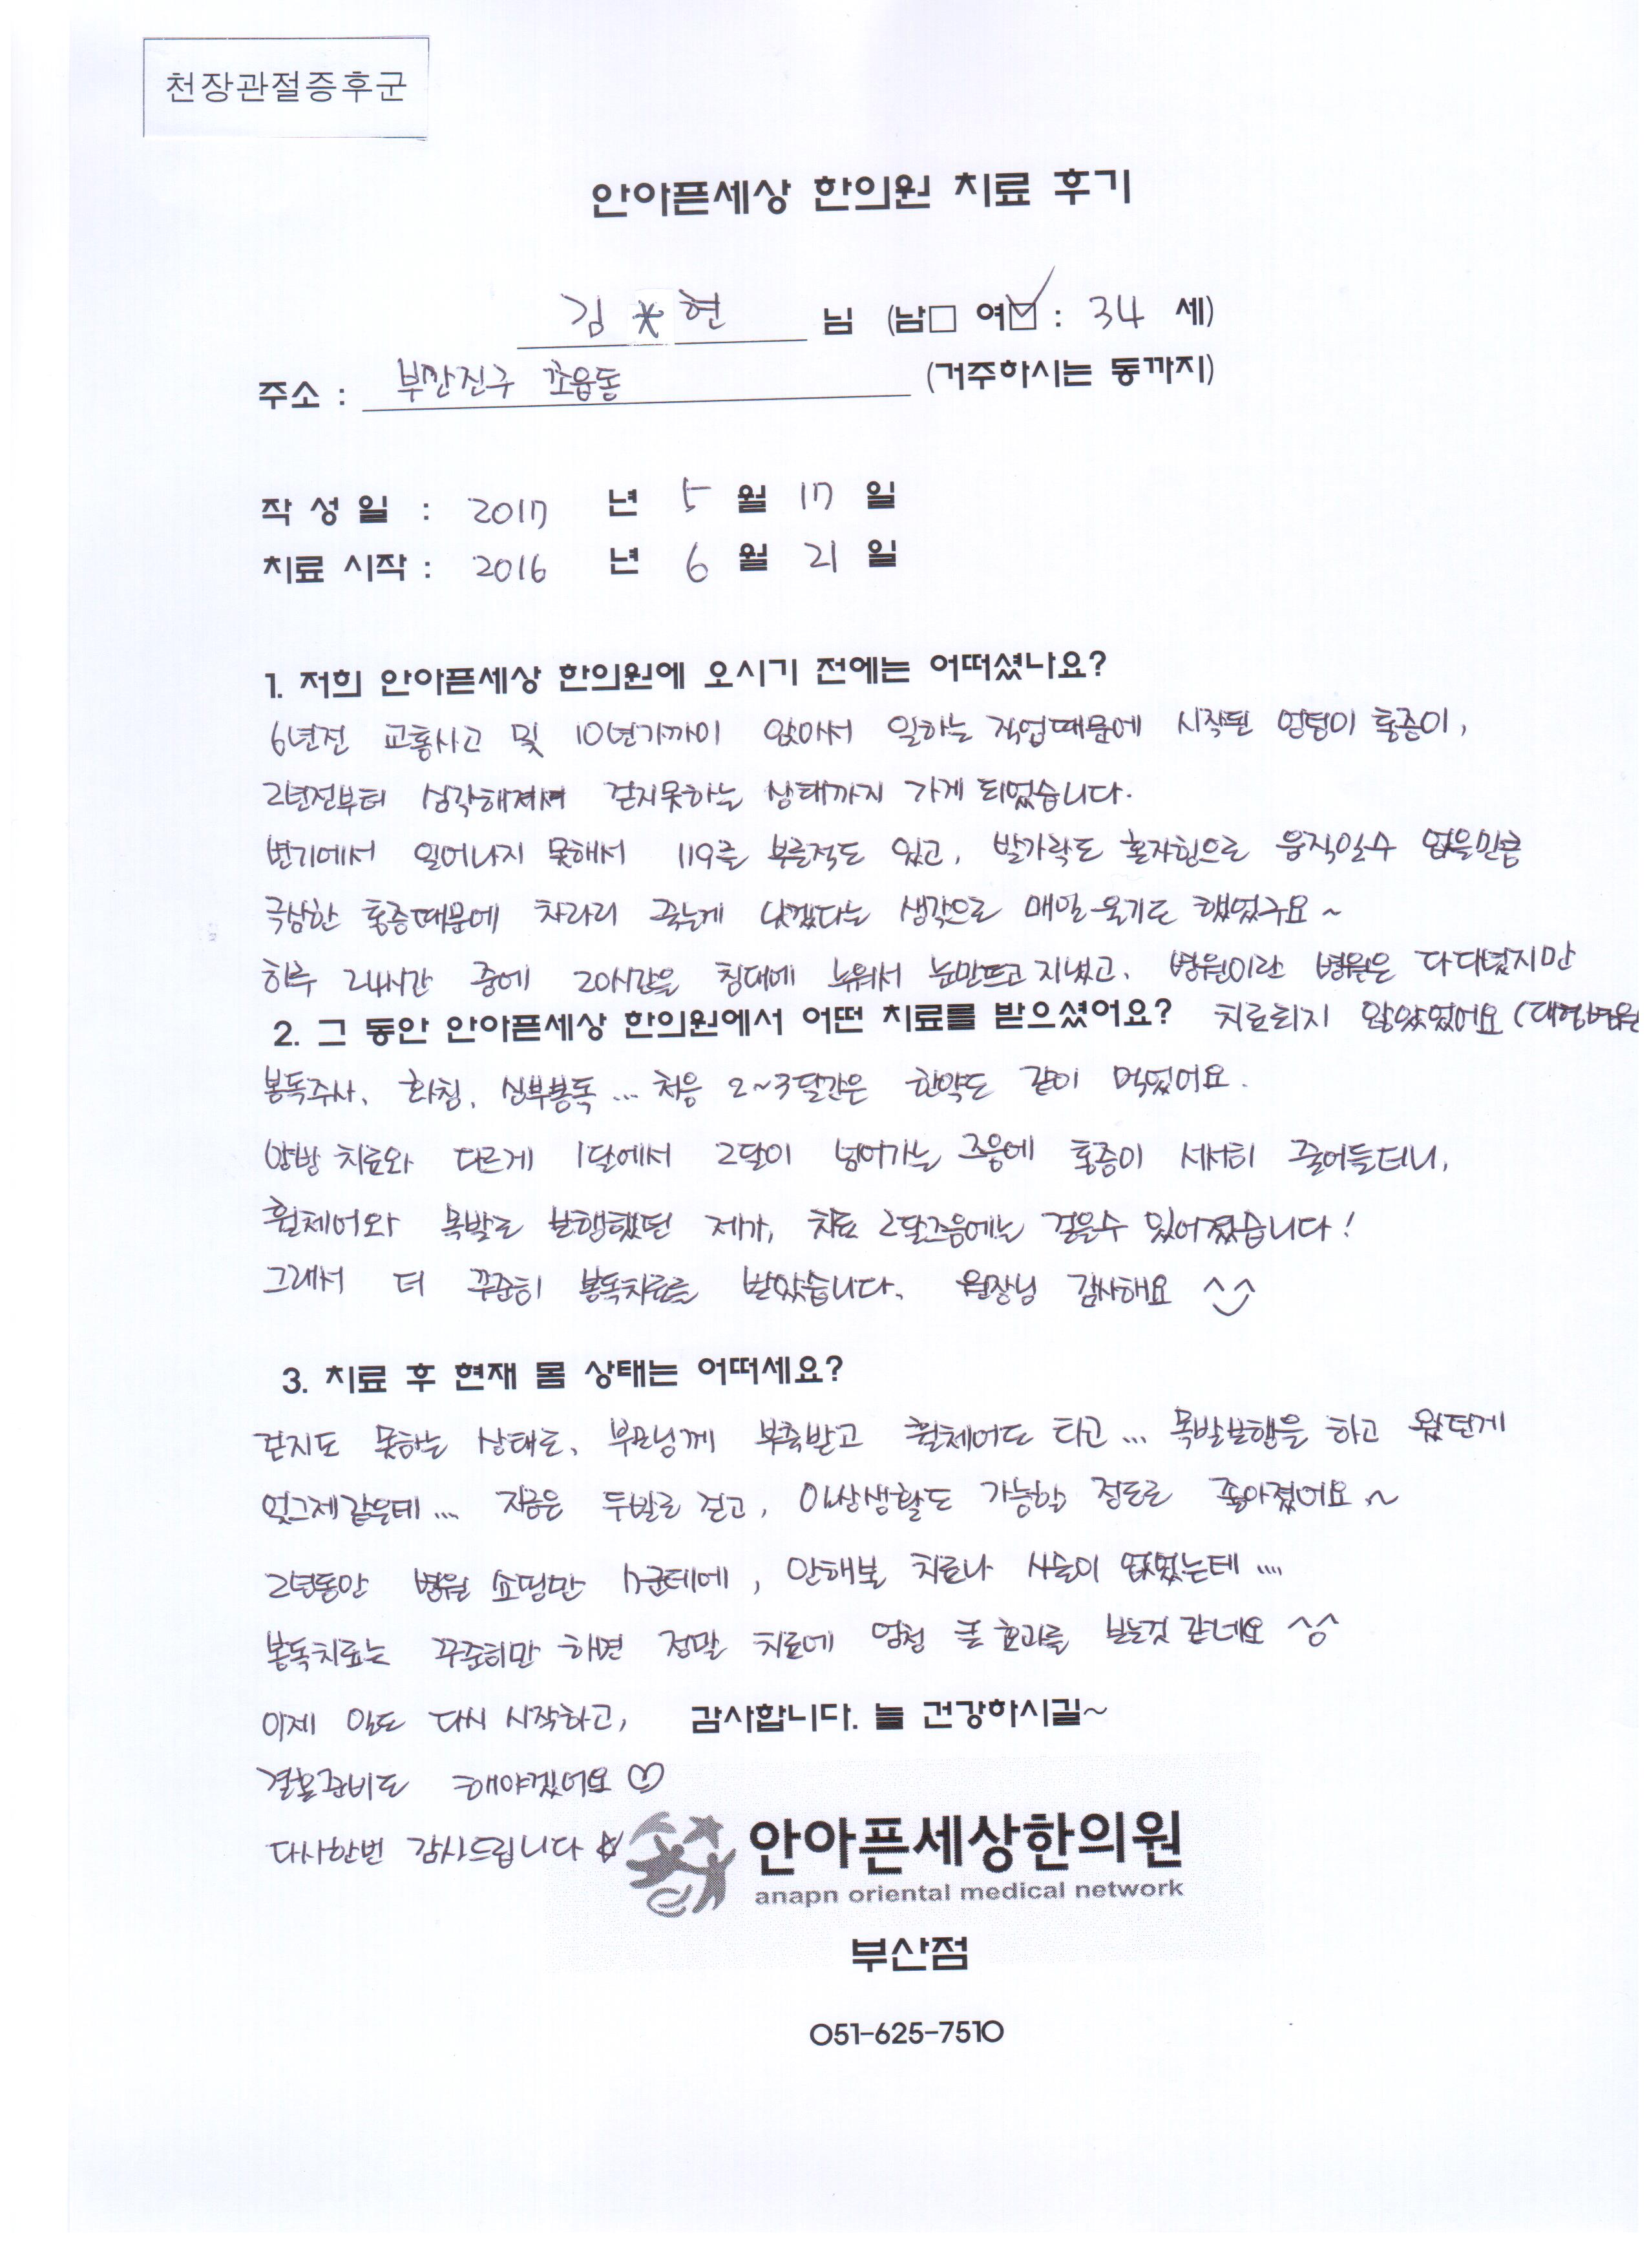 천장관절증후군
안아픈세상 한의원 치료 후기
김 * 현 님 (남□ 여☑ : 34 세)
주소 : 부산진구 초읍동 (거주하시는 동까지)
작 성 일 : 2017 년 5 월 17 일
치료 시작 : 2016 년 6 월 21 일
1. 저희 안아픈세상 한의원에 오시기 전에는 어떠셨나요?
6년전 교통사고 및 10년가까이 앉아서 일하는 직업때문에 시작된 엉덩이 통증이,
2년전부터 심각해져서 걷지못하는 상태까지 가게 되었습니다.
변기에서 일어나지 못해서 119를 부른적도 있고, 발가락도 혼자힘으로 움직일수 없을만큼
극심한 통증때문에 차라리 죽는게 낫겠다는 생각으로 매일 울기도 했었구요~
하루 24시간 중에 20시간을 침대에 누워서 눈만뜨고 지냈고, 병원이란 병원은 다다녔지만
2. 그 동안 안아픈세상 한의원에서 어떤 치료를 받으셨어요? 치료되지 않았었어요 (대형병원
봉독주사, 화침, 심부봉독 ... 처음 2~3달간은 한약도 같이 먹었어요.
양방 치료와 다르게 1달에서 2달이 넘어가는 즈음에 통증이 서서히 줄어들더니,
휠체어와 목발로 보행했던 제가, 치료 2달즈음에는 걸을수 있어졌습니다!
그래서 더 꾸준히 봉독치료를 받았습니다. 원장님 감사해요 ^^
3. 치료 후 현재 몸 상태는 어떠세요?
걷지도 못하는 상태로, 부모님께 부축받고 휠체어도 타고 ... 목발보행을 하고 왔던게
엊그제같은데 ... 지금은 두발로 걷고, 일상생활도 가능할 정도로 좋아졌어요~
2년동안 병원 쇼핑만 17군데에, 안해본 치료나 시술이 없었는데 ....
봉독치료는 꾸준히만 하면 정말 치료에 엄청 큰 효과를 보는것 같네요 ^^
이제 일도 다시 시작하고, 감사합니다. 늘 건강하시길~
결혼준비도 해야겠어요 ♡
다시한번 감사드립니다 ☆
안아픈세상한의원
anapn oriental medical network
부산점
051-625-7510